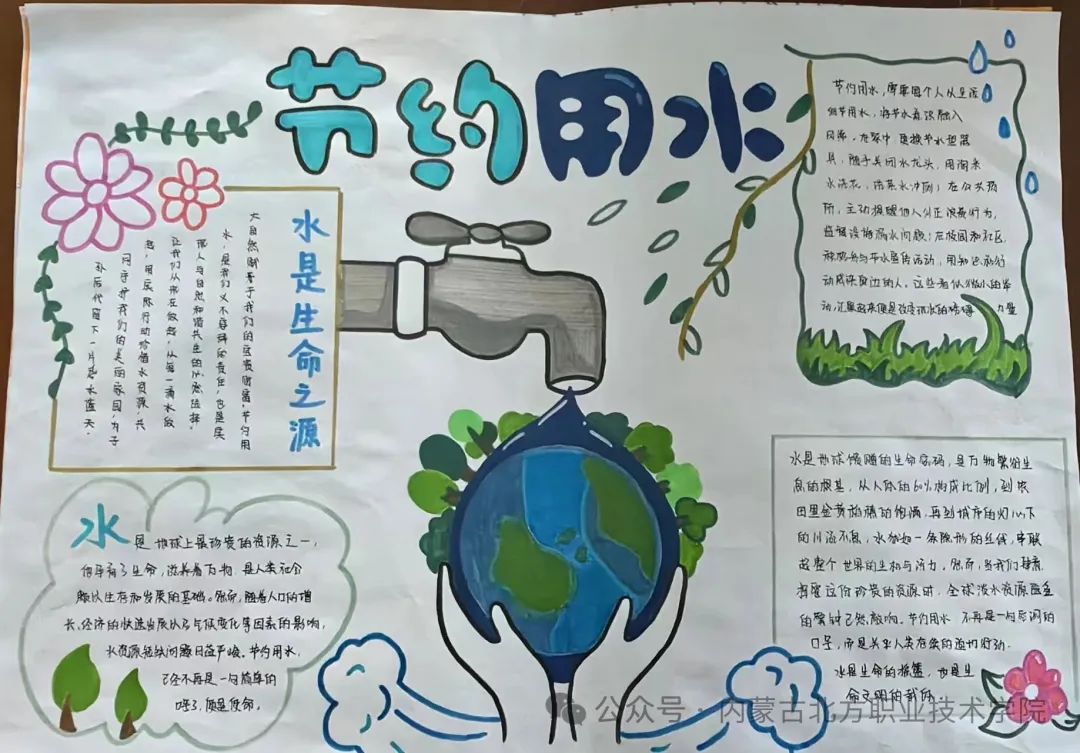 节约用水
水是生命之源
大自然赋予我们的宝贵财富,节约用
水,是我们义不容辞的责任,也是实
现人与自然和谐共生的必然选择,
让我们从现在做起,从每一滴水做
起,用实际行动珍惜水资源,共
同守护我们的美丽家园,为子
孙后代留下一片碧水蓝天。
节约用水,需要每个人从生活
细节用水,将节水意识融入
日常,在家中 更换节水型器
具,随手关闭水龙头,用淘米
水浇花,洗菜水冲厕;在公共场
所,主动提醒他人纠正浪费行为,
监督设施漏水问题;在校园和社区,
积极参与节水宣传活动,用知识和行
动感染身边的人,这些看似微小的举
动,汇聚起来便是改变 力量
水是地球上最珍贵的资源之一,
它孕育了生命,滋养着万物,是人类社会
赖以生存和发展的基础。然而,随着人口的增
长、经济的快速发展以及气候变化等因素的影响,
水资源短缺问题日益严峻。节约用水,
已经不再是一句简单的
口号,而是使命。
水是地球馈赠的生命密码,是万物繁衍生
息的根基,从人体的60%构成比例,到农
田里金黄稻穗的饱满,再到城市的灯火下
的川流不息,水犹如一条隐形的丝线,串联
起整个世界的生机与活力。然而,当我们肆意
挥霍这份珍贵的资源时,全球淡水资源匮乏
的警钟已然敲响。节约用水 不再是一句空洞的
口号,而是关乎人类存续的迫切行动.
水是生命的摇篮,也是生
命文明的
公众号·内蒙古北方职业技术学院